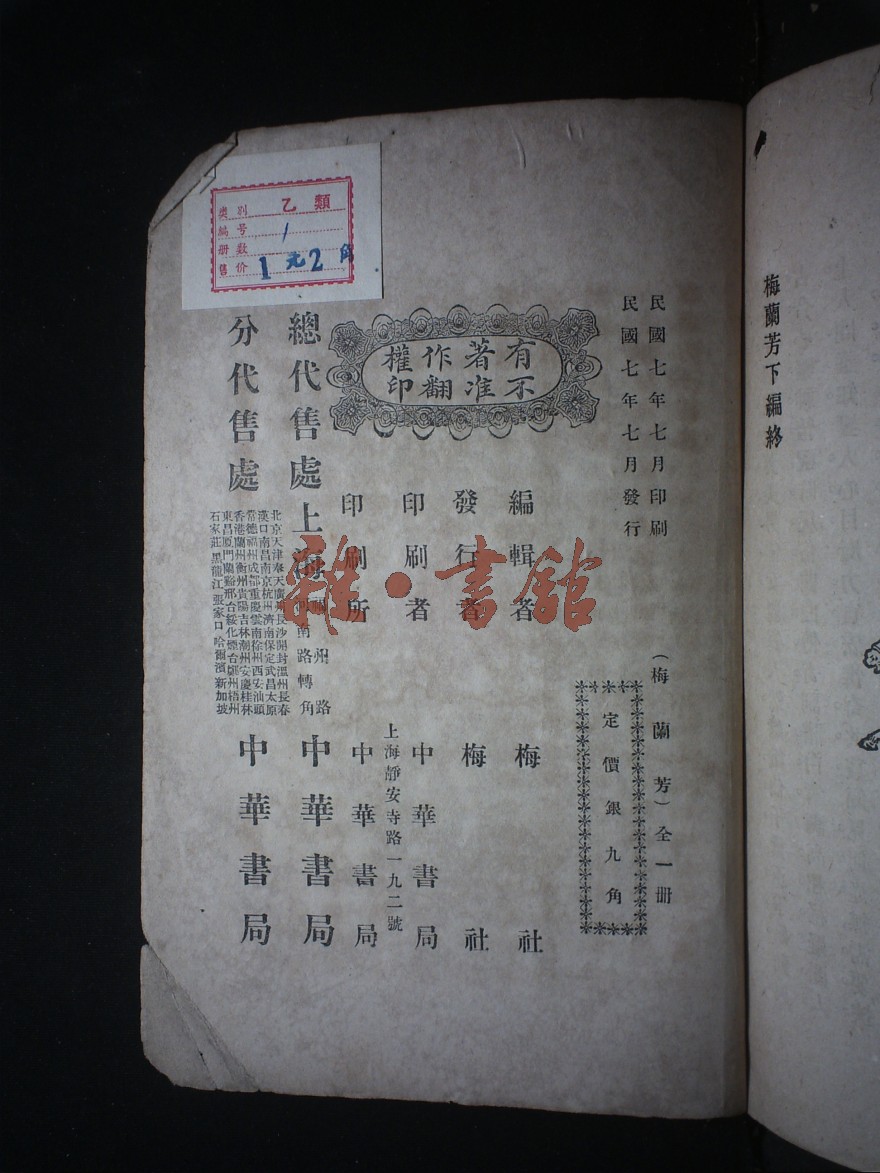 梅蘭芳下編終
民國七年七月印刷
民國七年七月發行
(梅蘭芳)全一册
定價銀九角
有不
著准
作翻
權印
編輯者 梅社
發行者 梅社
印刷者 中華書局
上海靜安寺路一九二號
印刷所 中華書局
總代售處 上海 福州路
河南路轉角 中華書局
分代售處
北京天津奉天廣州長沙開封溫州長春
漢口南昌南京杭州濟南保定武昌太原
常德福州成都重慶雲南徐州西安汕頭
香港蘭州衡州貴陽吉林潮州安慶桂林
東昌厦門蘭谿邢台綏化煙台 州梧州
石家莊黑龍江張家口哈爾濱新加坡
中華書局
类别 乙類
編号 1
册数
售价 1元2角
雜·書館